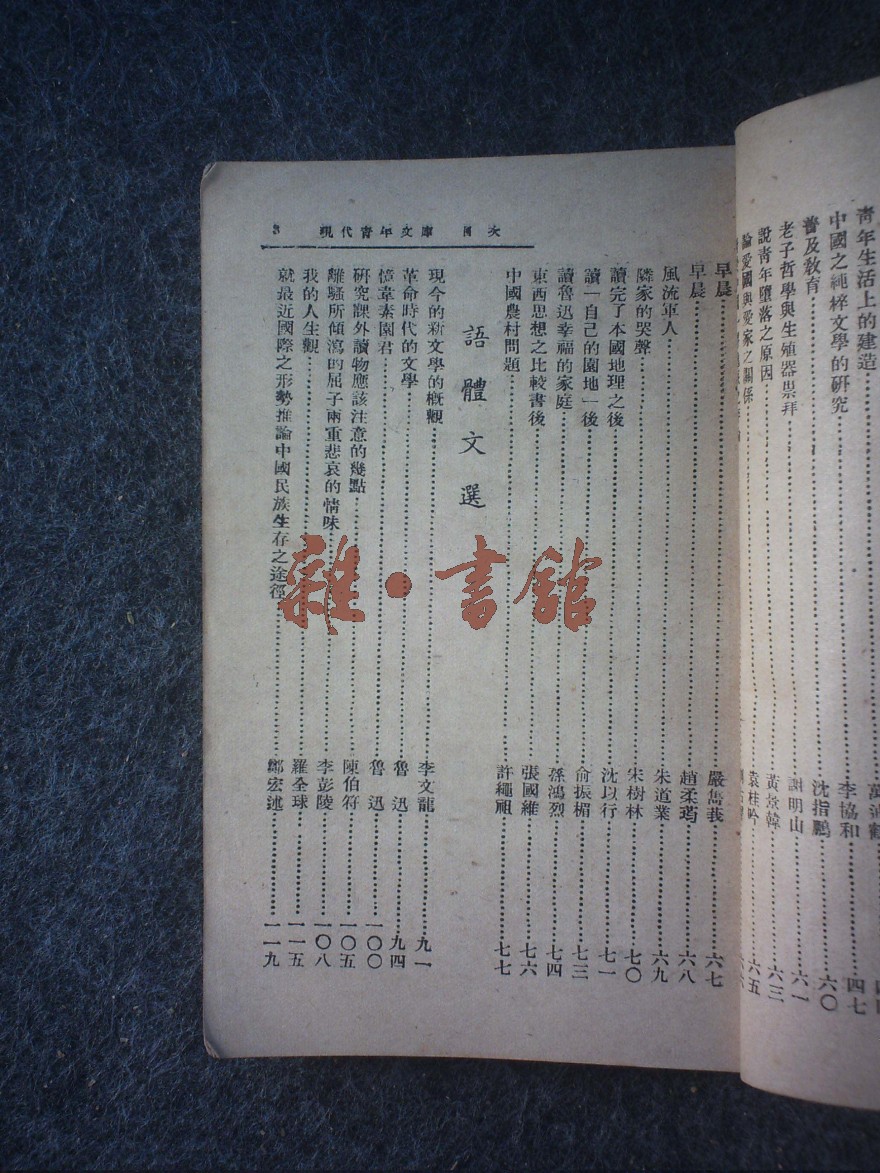 青年生活上的建造
中國之純粹文學的研究 李協和 四七
普及教育 沈指鵬 六〇
老子哲學與生殖器祟拜 謝明山 六一
說青年墮落之原因 黃焱韓 六三
論愛國與愛家之關係 袁桂吟 六五
3 現代青年文庫 目次
早晨 嚴雋莪 六七
早晨 趙柔筠 六八
風流軍人 朱道業 六九
隣家的哭聲 宋樹林 七〇
讀完了本國地理之後 沈以行 七一
讀「自己的園地」後 俞振楣 七三
讀魯迅幸福的家庭 孫鴻烈 七四
東西思想之比較書後 張國維 七六
中國農村問題 許繩祖 七七
語體文選
現今的新文學的概觀 李文龍 九一
革命時代的文學 魯迅 九四
憶韋素園君 魯迅 一〇〇
研究課外讀物應該注意的幾點 陳伯符 一〇五
離騷所傾瀉的屈子兩重悲哀的情味 李彭陵 一〇八
我的人生觀 羅全球 一一五
就最近國際之形勢推論中國民族生存之途徑 鄒宏述 一一九
雜·書館